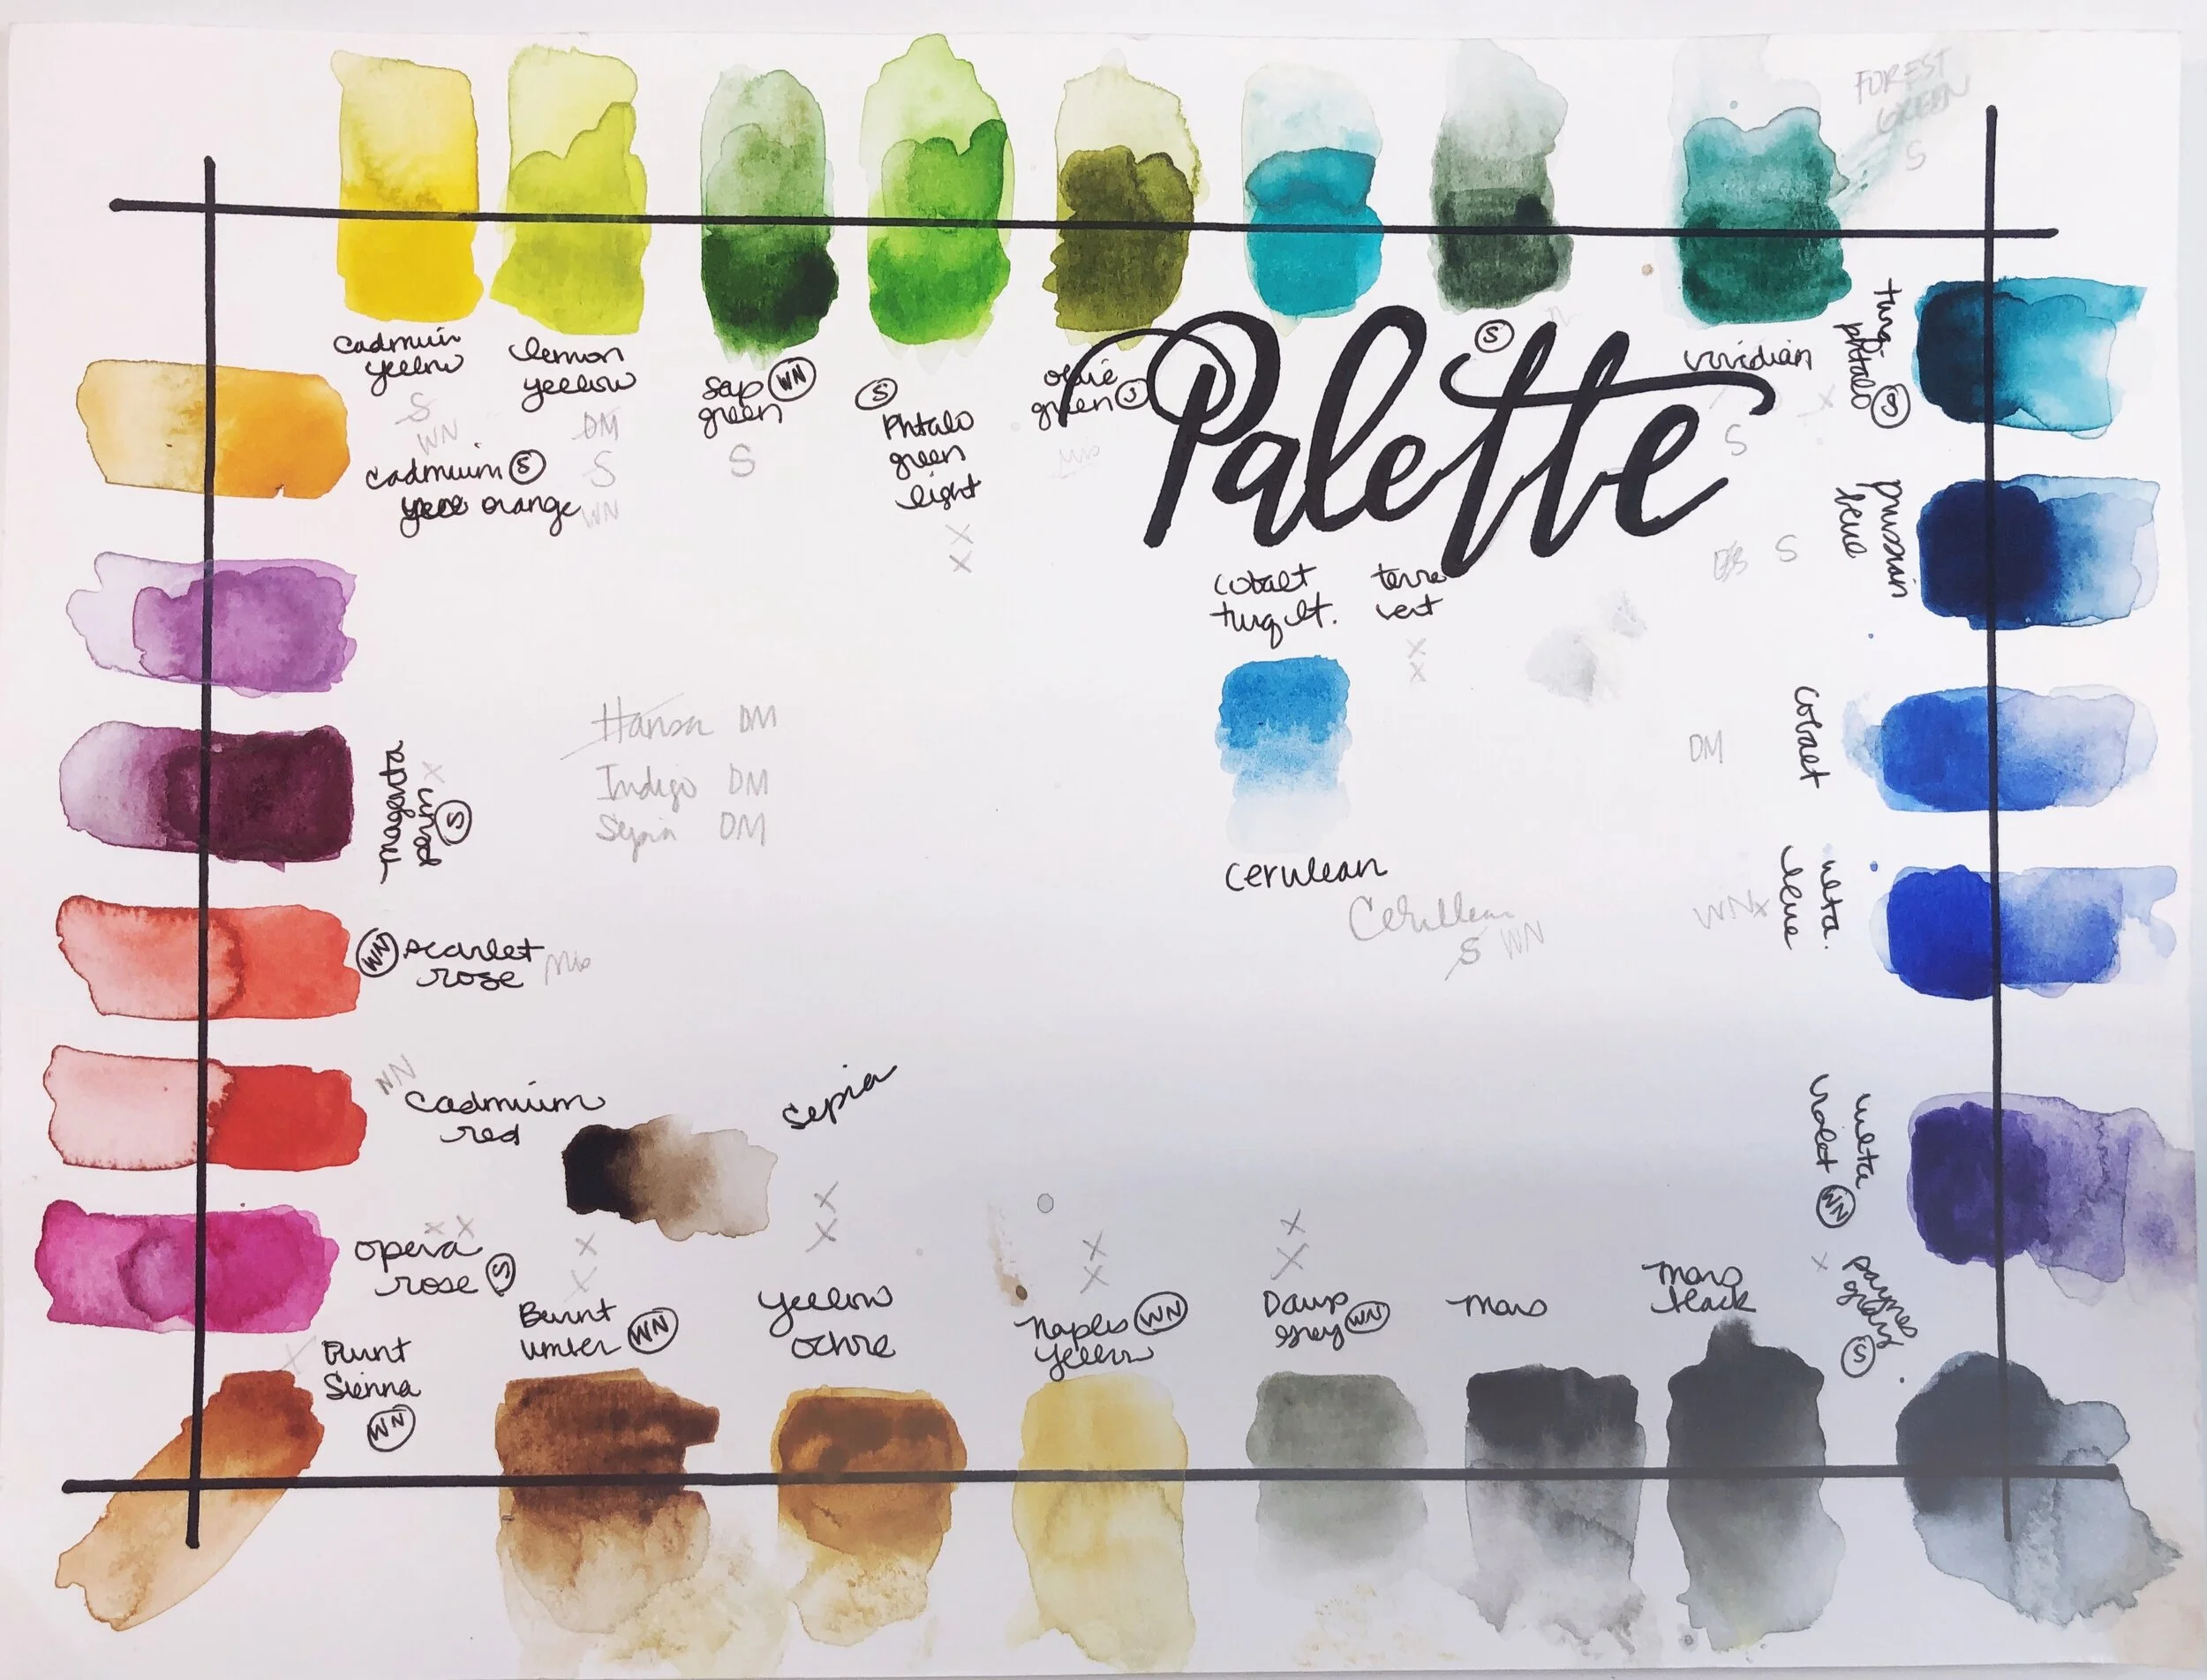 FOREST
GREEN
S
cadmuin
yellow
S
WN
lemon
yellow
DM
S
WN
sap WN
green
S
S
Phtalo
green
light
X
X
olive
green S
S
viridian
S
turq.
phtalo S
Palette
cadmium S
orange
prussian
blue
S
cobalt
turq lt.
terre
vert
X
X
Hansa DM
Indigo DM
Sepia DM
cobalt
DM
magenta
S
cerulean
Cerulean
S WN
ulta.
blue
WN x
WN scarlet
rose
WN
cadmium
red
sepia
ulta
violet WN
opera
rose S
Burnt
umber WN
yellow
ochre
Naples WN
yellow
Davys
grey WN
mars
mars
black
paynes
gray
S
Burnt
Sienna
WN